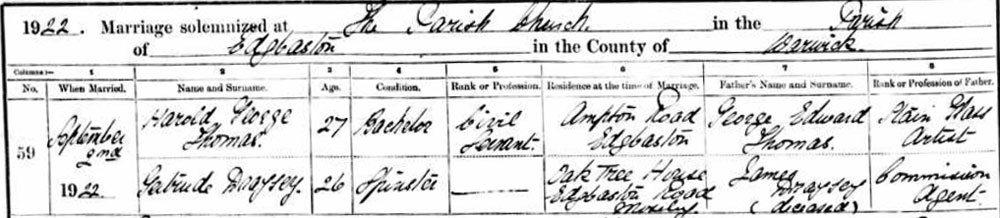 1922. Marriage solemnized at The Parish Church in the Parish
of Edgbaston in the County of Warwick.
Columns:— 1 2 3 4 5 6 7 8
No. When Married. Name and Surname. Age. Condition. Rank or Profession. Residence at the time of Marriage. Father's Name and Surname. Rank or Profession of Father.
59 September 2nd 1922 Harold George Thomas. 27 Bachelor Civil Servant. Ampton Road Edgbaston George Edward Thomas. Artist
Gertrude 26 Spinster — Oak Tree House Edgbaston Road James (deceased) Commission Agent.